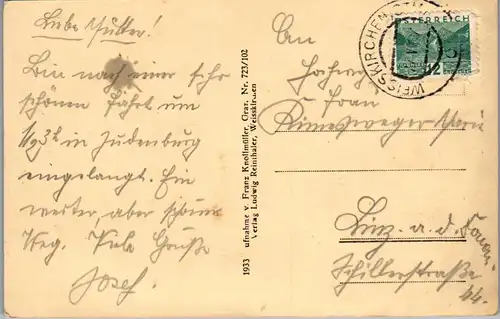 Liebe Mutter!
Bin nach einer sehr
schönen Fahrt um
in Judenburg
eingelangt. Ein
weiter, aber schöner
Weg. Viele Grüße
Josef.
1933 ufnahme v. Franz Knollmüller, Graz. Nr. 723/102
Verlag Ludwig Reinthaler, Weisskirchen
WEISSKIRCHEN
ÖSTERREICH
12
An
Frau
Linz a. d. Donau
Schillerstraße